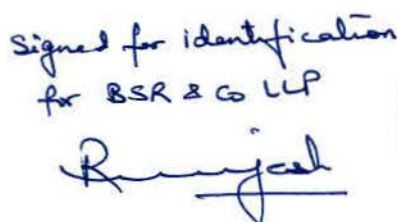 Signed for identification
for BSR & Co LLP